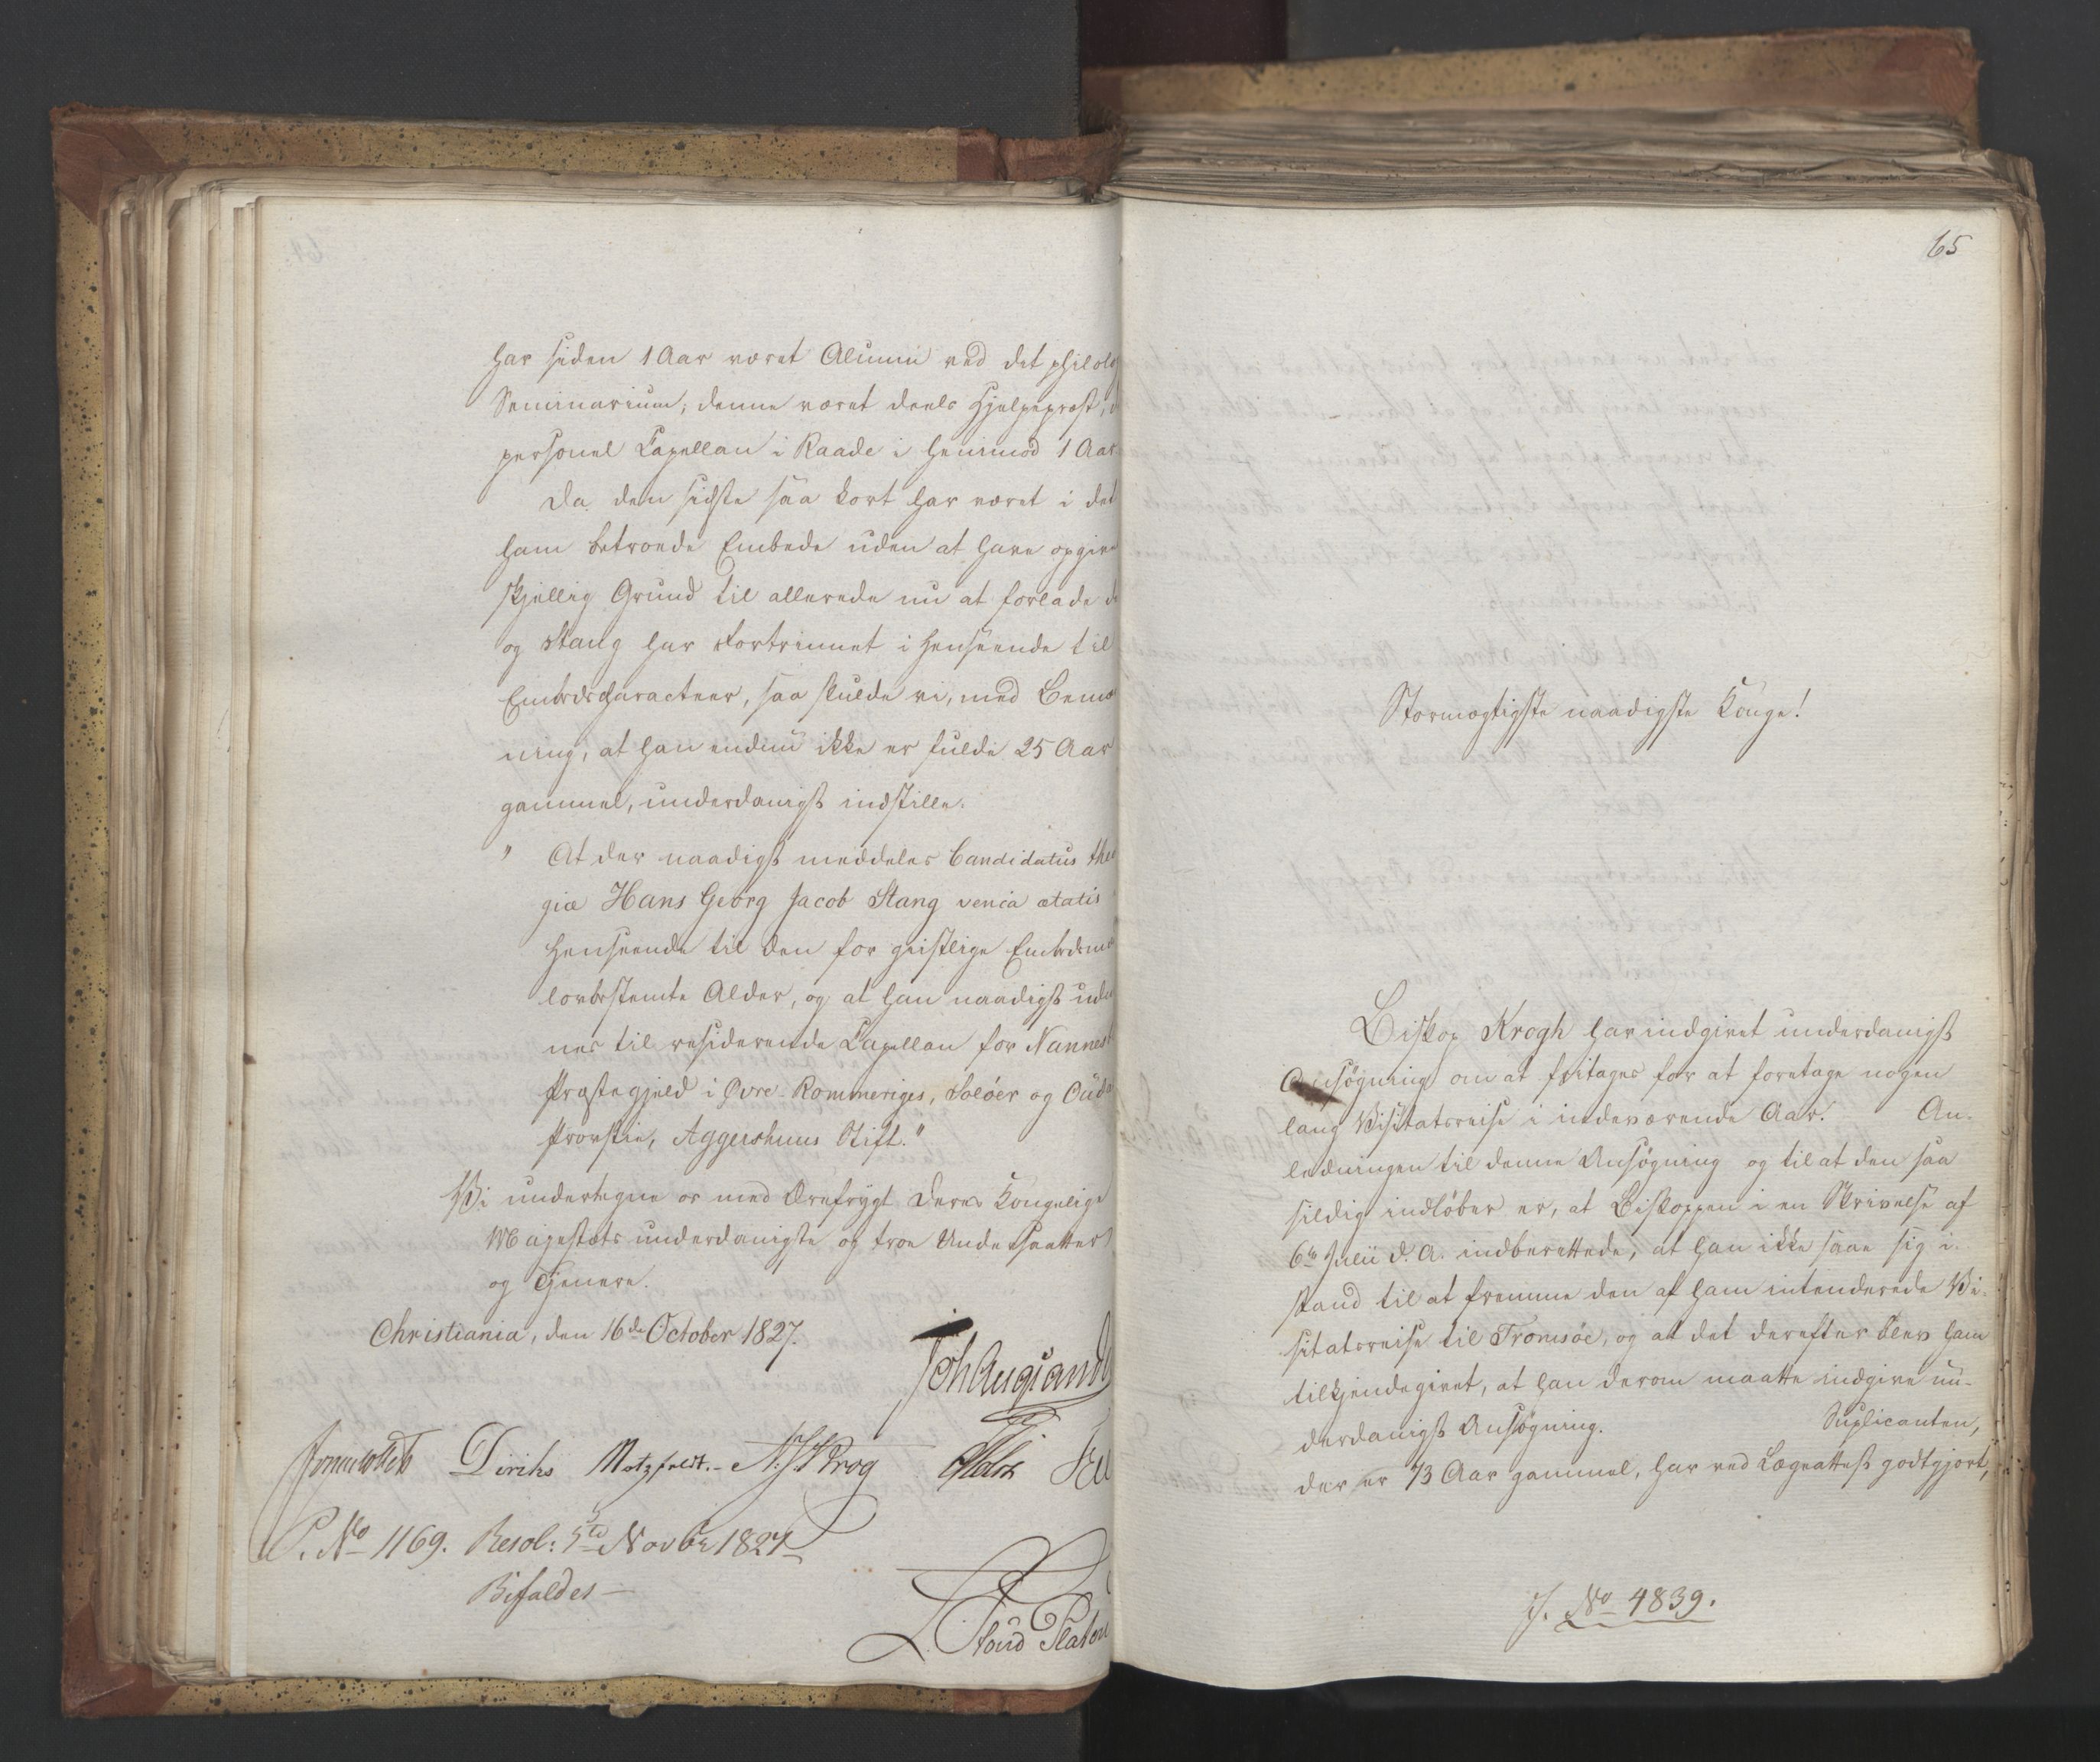 har siden 1 Aar været Alumni ved det philolo
Seminarium; denne været deels Hjelpepræst,
personel Capellan i Raade i henimod 1 Aar
Da den sidste saa kort har været i det
ham betroede Embede uden at have opgive
skjellig Grund til allerede nu at forlade d
og Stang har Fortrinnet i Henseende til
Embedscharacteer, saa skulde vi, med Bemæ
ning, at han endnu ikke er fulde 25 Aar
gammel, underdanigst indstille.
" At der naadigst meddeles Candidatus theo
giæ Hans Georg Jacob Stang venia ætatis
Henseende til den for geistlige Embedsmæ
lovbestemte Alder, og at han naadigst udnæ
nes til residerende Capellan for Nannest
Præstegjeld i Øvre-Rommeriges, Soløer og Oud
Provstie, Aggershuus Stift."
Vi undertegne os med Ærefrygt Deres Kongelige
Majestæts underdanigste og troe Undersaatter
og Tjenere.
Christiania, den 16de October 1827.
Joh Aug Sand
Diriks Motzfeldt. N. J. Krog
P. No 1169. Resol: 5te Novbr 1827
Bifaldes
Platen
65
Stormægtigste naadigste Konge!
Biskop Krogh har indgivet underdanigst
Ansøgning om at fritages for at foretage nogen
lang Visitatsreise i indeværende Aar. An-
ledningen til denne Ansøgning og til at den saa
sildig indløber er, at Biskoppen i en Skrivelse af
6te Julii d. A. indberettede, at han ikke saae sig i
stand til at fremme den af ham intenderede Vi-
sitatsreise til Tromsøe, og at det derefter blev ham
tilkjendegivet, at han derom maatte indgive un-
derdanigst Ansøgning. Suplicanten,
der er 73 Aar gammel, har ved Lægeattest godtgjort,
J. No 4839.